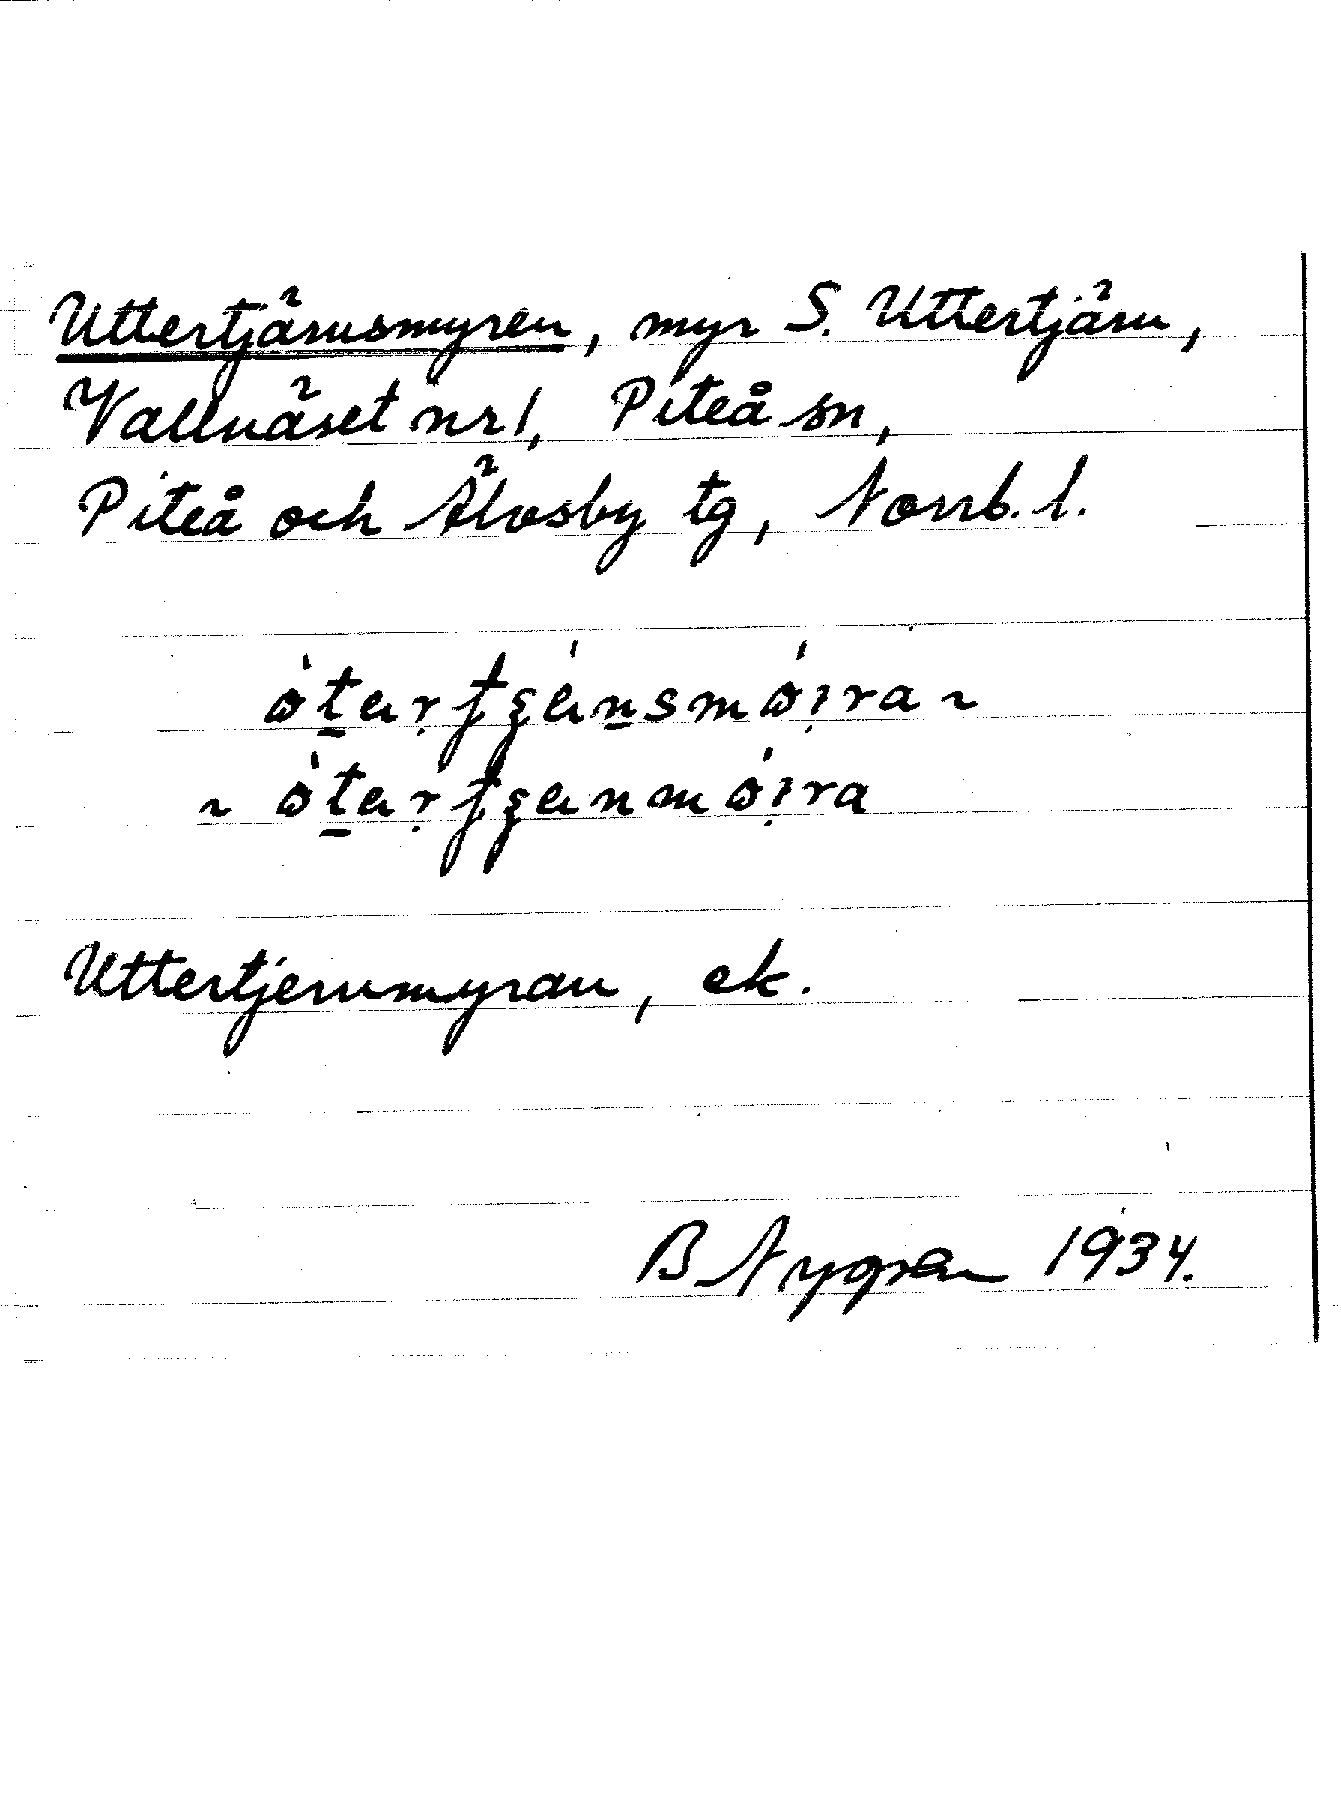 Uttertjärnsmyren, myr S. Uttertjärn,
Vallnäset nr 1, Piteå sn,
Piteå och Älvsby tg, Norrb. l.
Uttertjernmyran, ek.
B Nygren 1934.